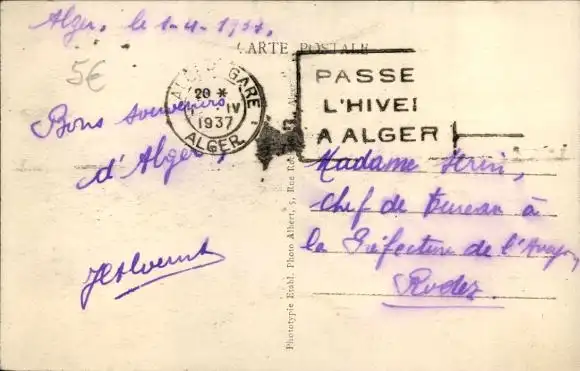 Alger, le 1-4-1937.
CARTE POSTALE
5€
ALGER GARE
20 *
IV
1937
ALGER
PASSE
L'HIVE
A ALGER
Bons souvenirs
d'Alger,
Madame
chef de bureau à
la Préfecture de l'Aveyron
Rodez
Phototypie Etabl. Photo Albert, 5, Rue